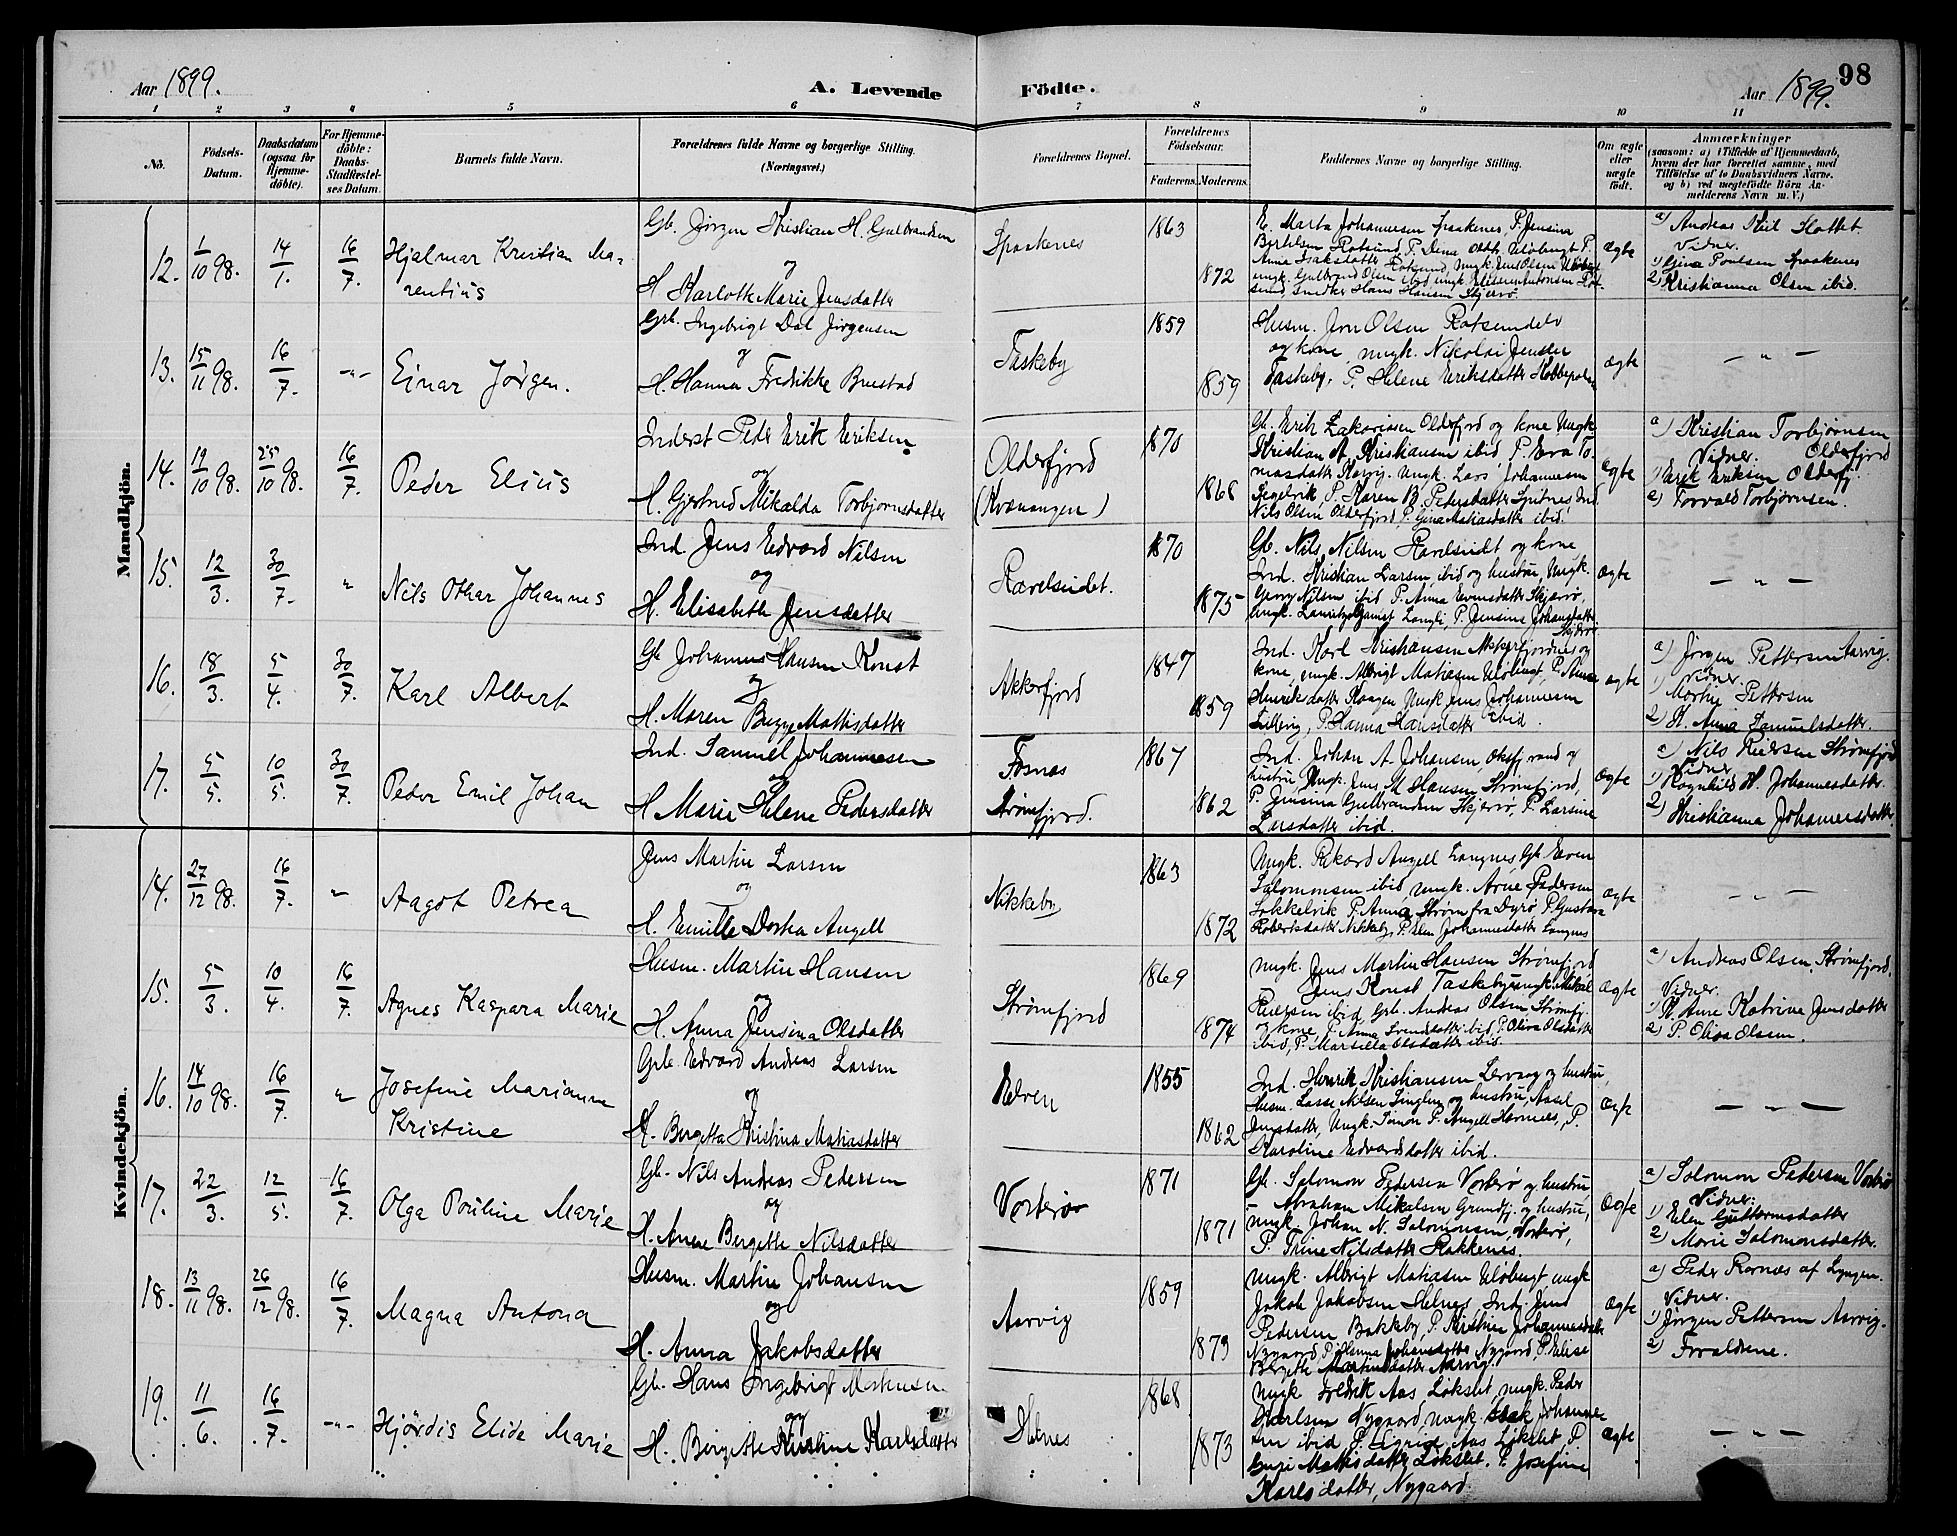 98
Aar 1899.
A. Levende Födte.
Aar 1899.
1 2 3 4 5 6 7 8 9 10 11
No.
Födsels-
Datum.
Daabsdatum
(ogsaa for
Hjemme-
döbte).
For Hjemme-
döbte:
Daabs-
Stadfæstel-
ses Datum.
Barnets fulde Navn.
Forældrenes fulde Navne og borgerlige Stilling.
(Næringsvei.)
Forældrenes Bopæl.
Forældrenes
Födselsaar.
Faderens. Moderens.
Faddernes Navne og borgerlige Stilling.
Om ægte
eller
uægte
födt.
Anmærkninger
(saasom: a) i Tilfælde af Hjemmedaab,
hvem der har forrettet samme, med
Tilföielse af to Daabsvidners Navne.
og b) ved uegtefödte Börn An-
melderens Navn m. V.)
Mandkjön.
12. 1/10 98. 14/1. 16/7. Hjalmar Kristian Ma-
rentius
Gb. Jørgen Kristian H. Gulbrandsen
og
H. Harlotte Marie Jensdatter
Spaakenes
1863
1872
E. Marta Johannesen Spaakenes P. Jensine
Bertelsen Rotsund P.
Anna Isaksdatter Rotsund, ungk. Jens Olsen
ungk. Gulbrand Olsen ibid, ungk.
sund, Snedker Hans Hansen Skjervø.
ægte
a) Andreas Kiil Slottet.
Vidner.
1) Gina Poulsen Spaakenes
2) Kristianna Olsen ibid.
13. 15/11 98. 16/7. -"- Einar Jörgen.
Grb. Ingebrigt Dal Jørgensen
og
H. Hanna Fredrikke Buestad
Taskeby
1859
1859
Husm. Jon Olsen Rotsundelv
og kone, ungk. Nikolai Jensen
Taskeby, P. Helene Eriksdatter
ægte
— " —
14. 19/10 98. 25/10 98. 16/7. Peder Elius
Inderst Peder Erik Eriksen
og
H. Gjertrud Mikalda Torbjørnsdatter
Olderfjord
(Kvænangen)
1870
1868
Gb. Erik Zakariasen Olderfjord og kone Ungk
Kristian A. Kristiansen ibid P. Eva To-
masdatter Karvig. Ungk. Lars Johannesen
Segelvik, P. Karen B. Pedersdatter Spitnes Ind.
Nils Olsen Olderfjord, P. Gina Matiasdatter ibid.
ægte
a) Kristian Torbjørnsen
Vidner. Olderfjord
1) Erik Eriksen Olderfj.
2) Torvald Torbjørnsen.
15. 12/3. 30/7. " Nils Othar Johannes
Ind. Jens Edvard Nilsen
og
H. Elisabeth Jensdatter
Ravelseidet.
1870
1875
Gb. Nils Nilsen Ravelseidt og kone
Ind. Kristian Larsen ibid og hustru, Ungk.
Georg Nilsen ibid P. Anna Evensdatter Skjervø,
Ungk. Langli, P. Jensine Johansdatter
Skjervø
ægte
— " —
16. 18/3. 5/4. 30/7. Karl Albert
Gb Johannes Hansen Konst
og
H. Maren Bugge Mattisdatter
Akkerfjord
1847
1859
Ind. Karl Kristiansen Akkerfjordnes og
kone, ungk. Albrigt Matiasen Uløbugt, P. Anne
Henriksdatter Kaagen Ungk Jens Johannesen
, P. Hanna Hansdatter ibid.
ægte
a) Jørgen Pettersen Aarvig.
Vidner.
1) Martin Pettersen
2) H. Anna Samuelsdatter.
17. 5/5. 10/5. 30/7. Peder Emil Johan
Ind. Samuel Johannesen
og
H Marie Helene Pedersdatter
Fosnæs
Strømfjord.
1867
1862
Ind. Johan A. Johansen, Oksfj.vand og
hustru, Ungk. Jens M Hansen Strømfjord,
P. Jensina Gulbrandsen Skjervø, P. Larsine
Larsdatter ibid.
ægte
a) Nils Peersen Strømfjord
Vidner
1) Ragnhild H. Johannesdatter
2) Kristianna Johannesdatter.
Kvindekjön.
14. 27/12 98. 16/7. " Aagot Petrea
Jens Martin Larsen
og
H. Emille Dortea Angell
Nikkeby
1863
1872
Ungk. Rikard Angell Langnes, Gb. Even
Salomonsen ibid, ungk. Arne Pedersen
Lokkelvik P. Anna Strøm fra Dyrø P. Gustava
Robertsdatter Nikkeby, P. Elen Johannesdatter Langnes
ægte
— " —
15. 5/3. 10/4. 16/7. Agnes Kaspara Marie
Husm. Martin Hansen
og
H. Anna Jensina Olsdatter
Strømfjord
1869
1874
Ungk. Jens Martin Hansen Strømfjord
Jens Konst Taskeby, ungk. Mikal
Peersen ibid Grb. Andreas Olsen Strømfj.
og kone, P. Anna Svendsdatter ibid, P. Oliva Olsdatter
ibid, P. Marselia Olsdatter ibid.
ægte
a) Andreas Olsen, Strømfjord.
Vidner.
1) H. Ane Katrine Jensdatter
2) P. Oliva Olsen.
16. 14/10 98. 16/7. " Josefine Marianna
Kristine
Grb. Edvard Andreas Larsen
og
H. Bergetta Kristina Matiasdatter
Elven
1855
1862
Ind. Henrik Kristiansen Lervaag og hustru,
Husm. Lasse Nilsen Singlen og hustru, Assel
Jensdatter, Ungk. Simon P. Angell Havnnes, P.
Karoline Edvardsdatter ibid.
ægte
— " —
17. 22/3. 12/5. 16/7. Olga Pouline Marie
Gb. Nils Andreas Pedersen
og
H. Anne Bergette Nilsdatter
Vorterø
1871
1871
Gb. Salomon Pedersen Vorterø og hustru,
Abraham Mikalsen Grundfj. og hustru,
Ungk. Johan N. Salomonsen, Vorterø,
P. Trine Nilsdatter Rakkenes.
ægte
a) Salomon Pedersen Vorterø
Vidner.
1) Elen Guttormsdatter
2) Marie Salomonsdatter.
18. 13/11 98. 26/12 98. 16/7. Magna Antona
Husm. Martin Johansen
og
H. Anna Jakobsdatter
Aarvig
1859
1873
Ungk. Albrigt Matiasen Uløbugt ungk
Jakob Jakobsen Helnes, Ind. Jens
Pedersen Bakkeby, P. Kirstine Johannesdatter
Nygaard P. Hanna Johansdatter Nygaard, P. Elise
Bergette Martinsdatter Aarvig.
ægte
a) Peder Rornæs af Lyngen.
Vidner.
1) Jørgen Pettersen Aarvig.
2) Forældrene.
19. 11/6. 16/7. -"- Hjördis Elide Marie
Gb. Hans Ingebrigt Mortensen
og
H. Bergette Kirstine Karlsdatter
Helnes
1868
1873
Ungk Fredrik Aas Løkslet, ungk. Peder
Karlsen Nygaard, ungk. Isak Johanne-
sen ibid P. Sigrid Aas Løkslet, P
Guri Mattisdatter Løkslet. P. Josefine
Karlsdatter, Nygaard.
ægte
— " —